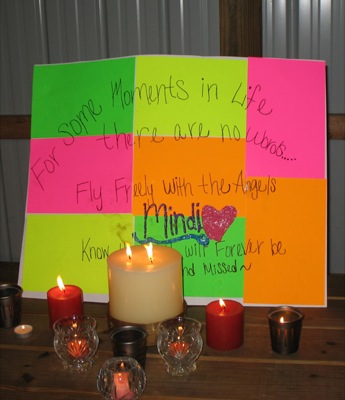 For Some Moments in Life
there are no words....
Fly Freely with the Angels
Mindi
Know will Forever be
nd Missed~